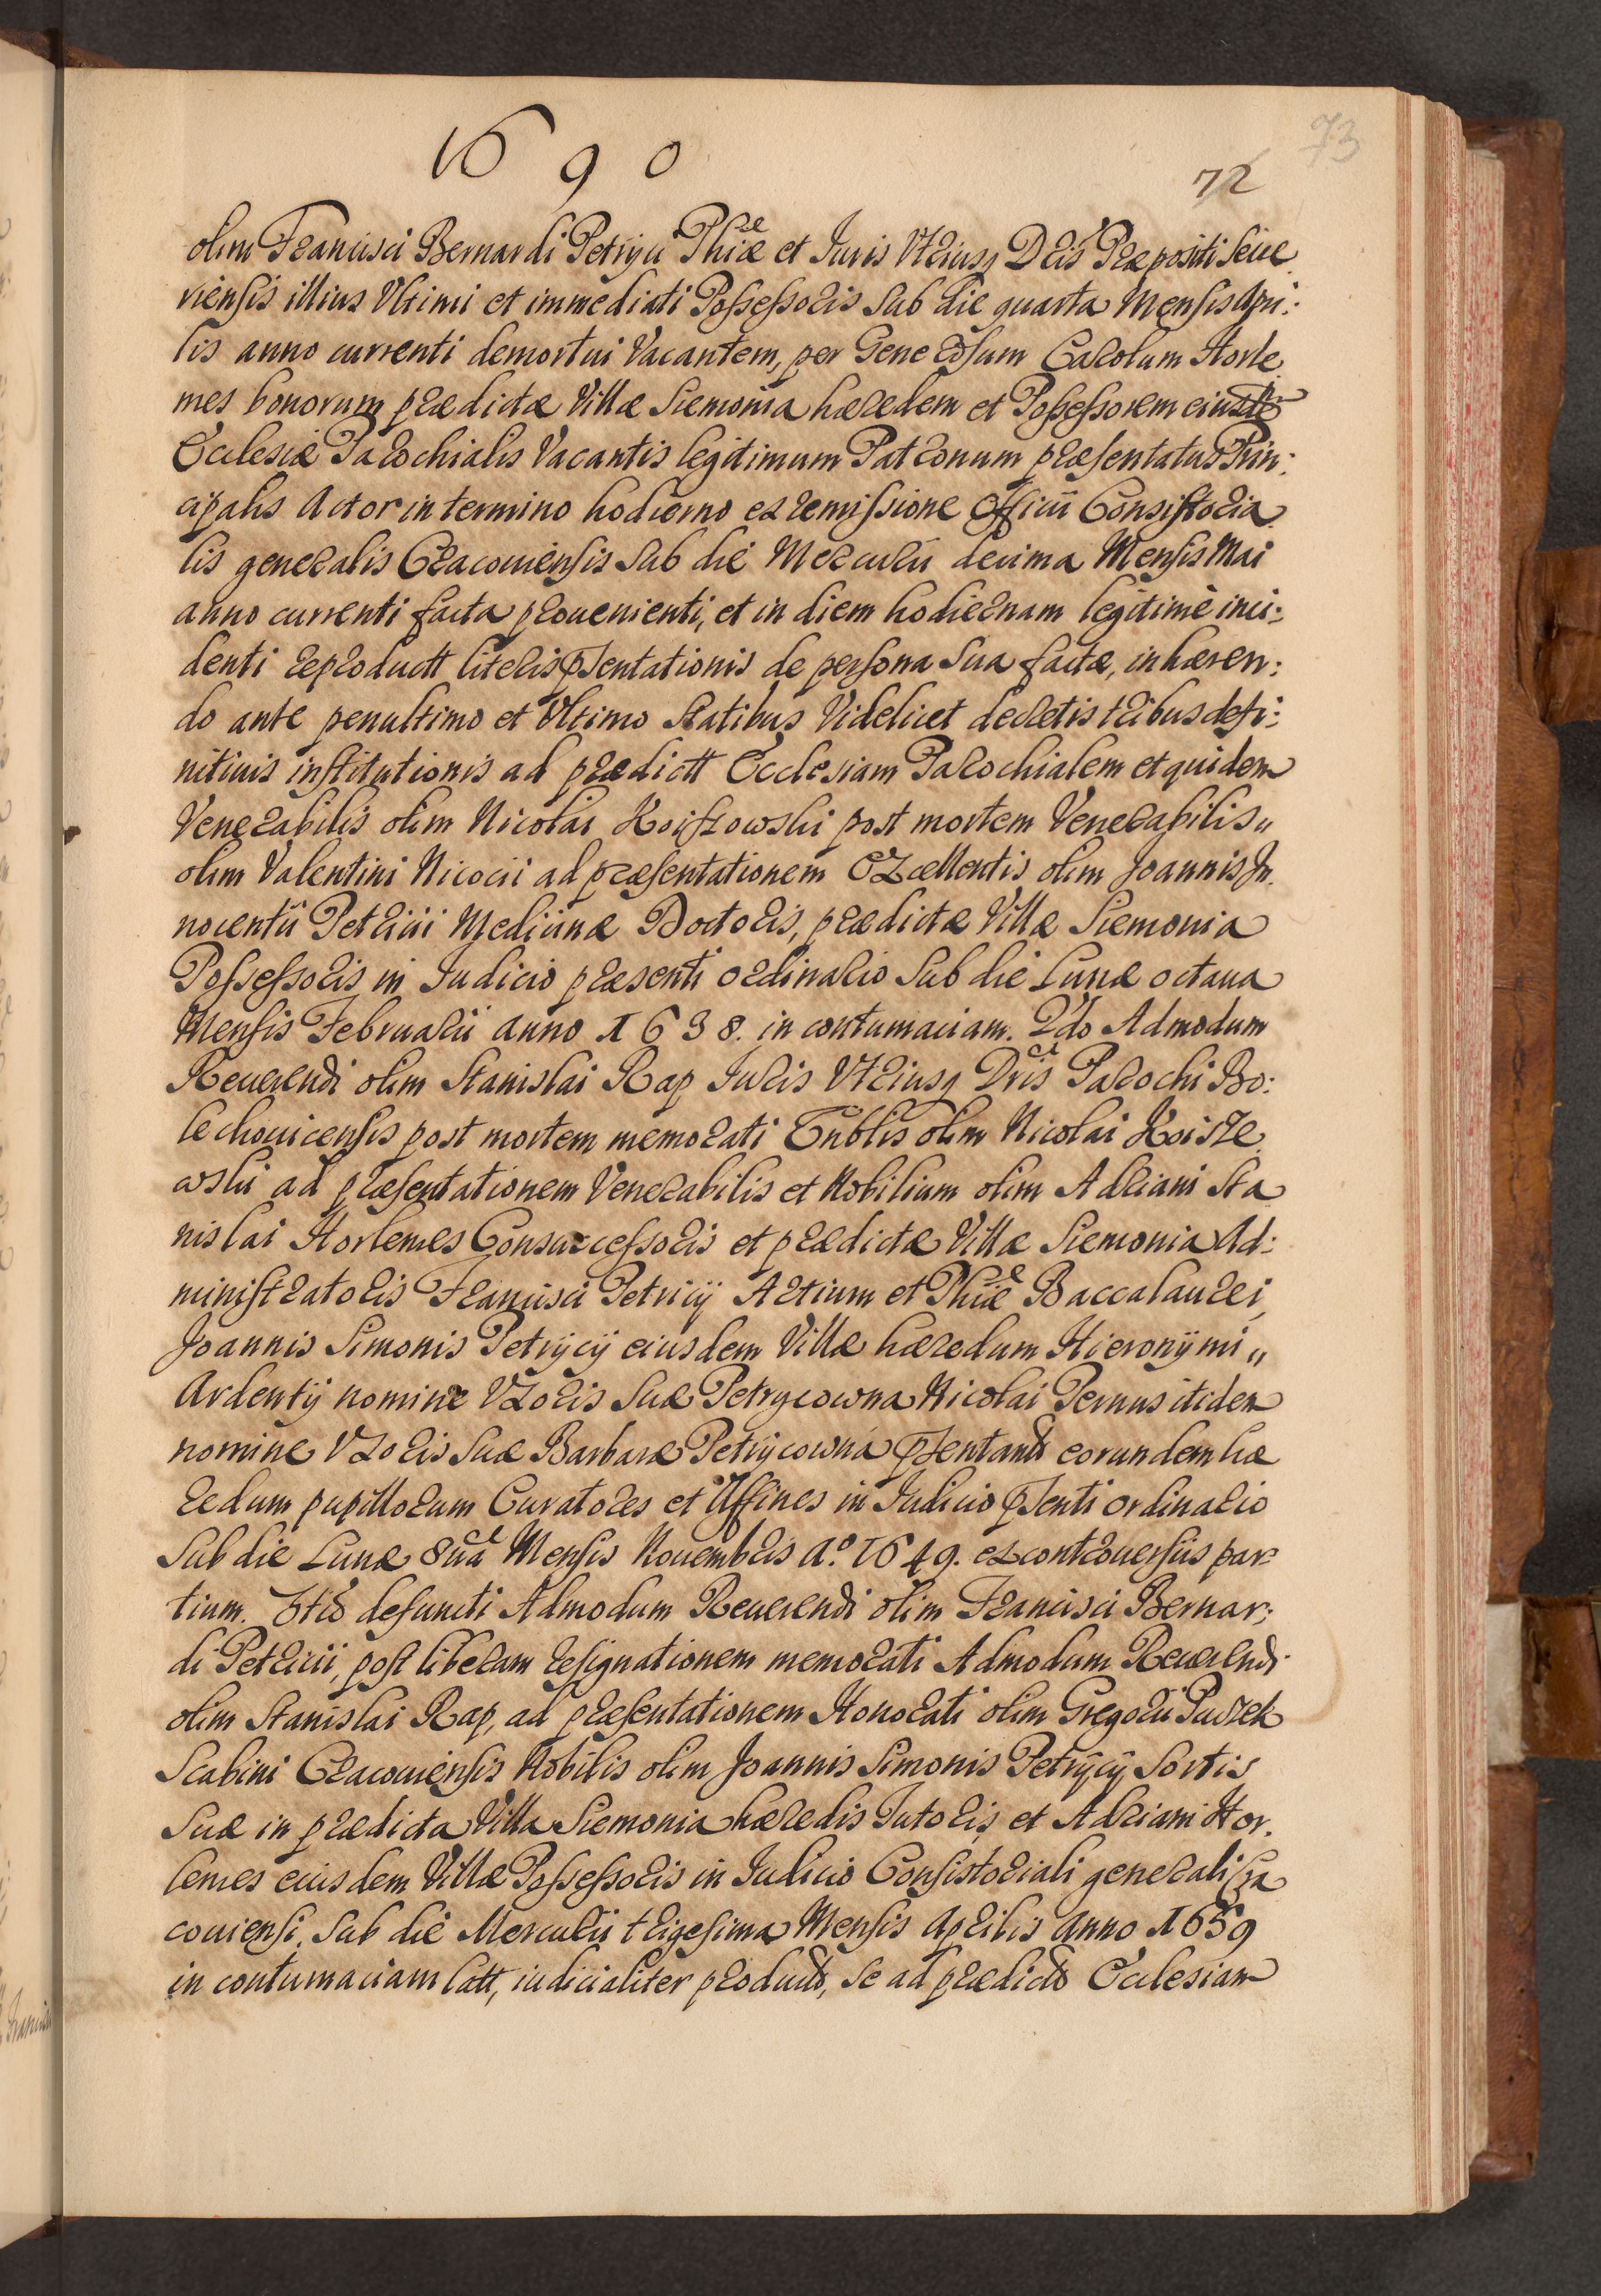 1690
73
72
olim Francisci Bernardi Petrycii Phiæ et Iuris Vtriusq Dris Præpositi Seve
riensis illius Vltimi et immediati Possessoris sub die quarta Mensis Apri:
lis anno currenti demortui Vacantem, per Generosum Carolum Horle
mes bonorum prædictæ Villæ Siemonia hæredem et Possessorem eiusdē
Ecclesiæ Parochialis Vacantis legitimum Patronum præsentatus Prin:
cipalis Actor in termino hodierno ex remissione Officii Consistoria
lis generalis Cracouiensis sub die Mercurii decima Mensis Mai
anno currenti facta prouenienti, et in diem hodiernam legitimè inci:
denti reproductt literis pntationis de persona sua factæ, inhæren:
do ante penultimo et Vltimo statibus Videlicet decretis tribus defi:
nitiuis institutionis ad prædictt Ecclesiam Parochialem et quidem
Venerabilis olim Nicolai Koiszowski post mortem Venerabilis
olim Valentini Nicocii ad præsentationem Excellentis olim Joannis In
nocentii Petricii Medicinæ Doctoris, prædictæ Villæ Siemonia
Possessoris in Iudicio præsenti ordinario sub die Lunæ octaua
Mensis Februarii anno 1638. in contumaciam. 2do Admodum
Reuerendi olim Stanislai Rap Iuris Vtriusq Dris Parochi Bo:
lechouicensis post mortem memorati Vnblis olim Nicolai Koisze
wski ad præsentationem Venerabilis et Nobilium olim Adriani Sta
nislai Horlemes Consuccessoris et prædictæ Villæ Siemonia Ad:
ministratoris Francisci Petricij Artium et Phiæ Baccalaurei
Joannis Simonis Petrycij eiusdem Villæ hæredum Hieronymi
Ardentij nomine Vxoris suæ Petrycowna Nicolai Pernus itidem
nomine Vxoris suæ Barbaræ Petrycowna pntantt eorundem hæ
redum pupillorum Curatores et Affines in Iudicio pnti ordinario
sub die Lunæ 8ua Mensis Nouembris Aº 1649. ex controuersiis par
tium. 3tiò defuncti Admodum Reuerendi olim Francisci Bernar:
di Petricii, post liberam resignationem memorati Admodum Reuerendi
olim Stanislai Rap, ad præsentationem Honorati olim Gregorii Paszek
Scabini Cracouiensis Nobilis olim Joannis Simonis Petrycij Sortis
suæ in prædicta Villa Siemonia hæredis Tutoris et Adriani Hor.
lemes eiusdem Villæ Possessoris in Iudicio Consistoriali generali Cra
couiensi. sub die Mercurii trigesima Mensis Aprilis Anno 1659
in contumaciam latt, iudicialiter productt, se ad prædictt Ecclesiam